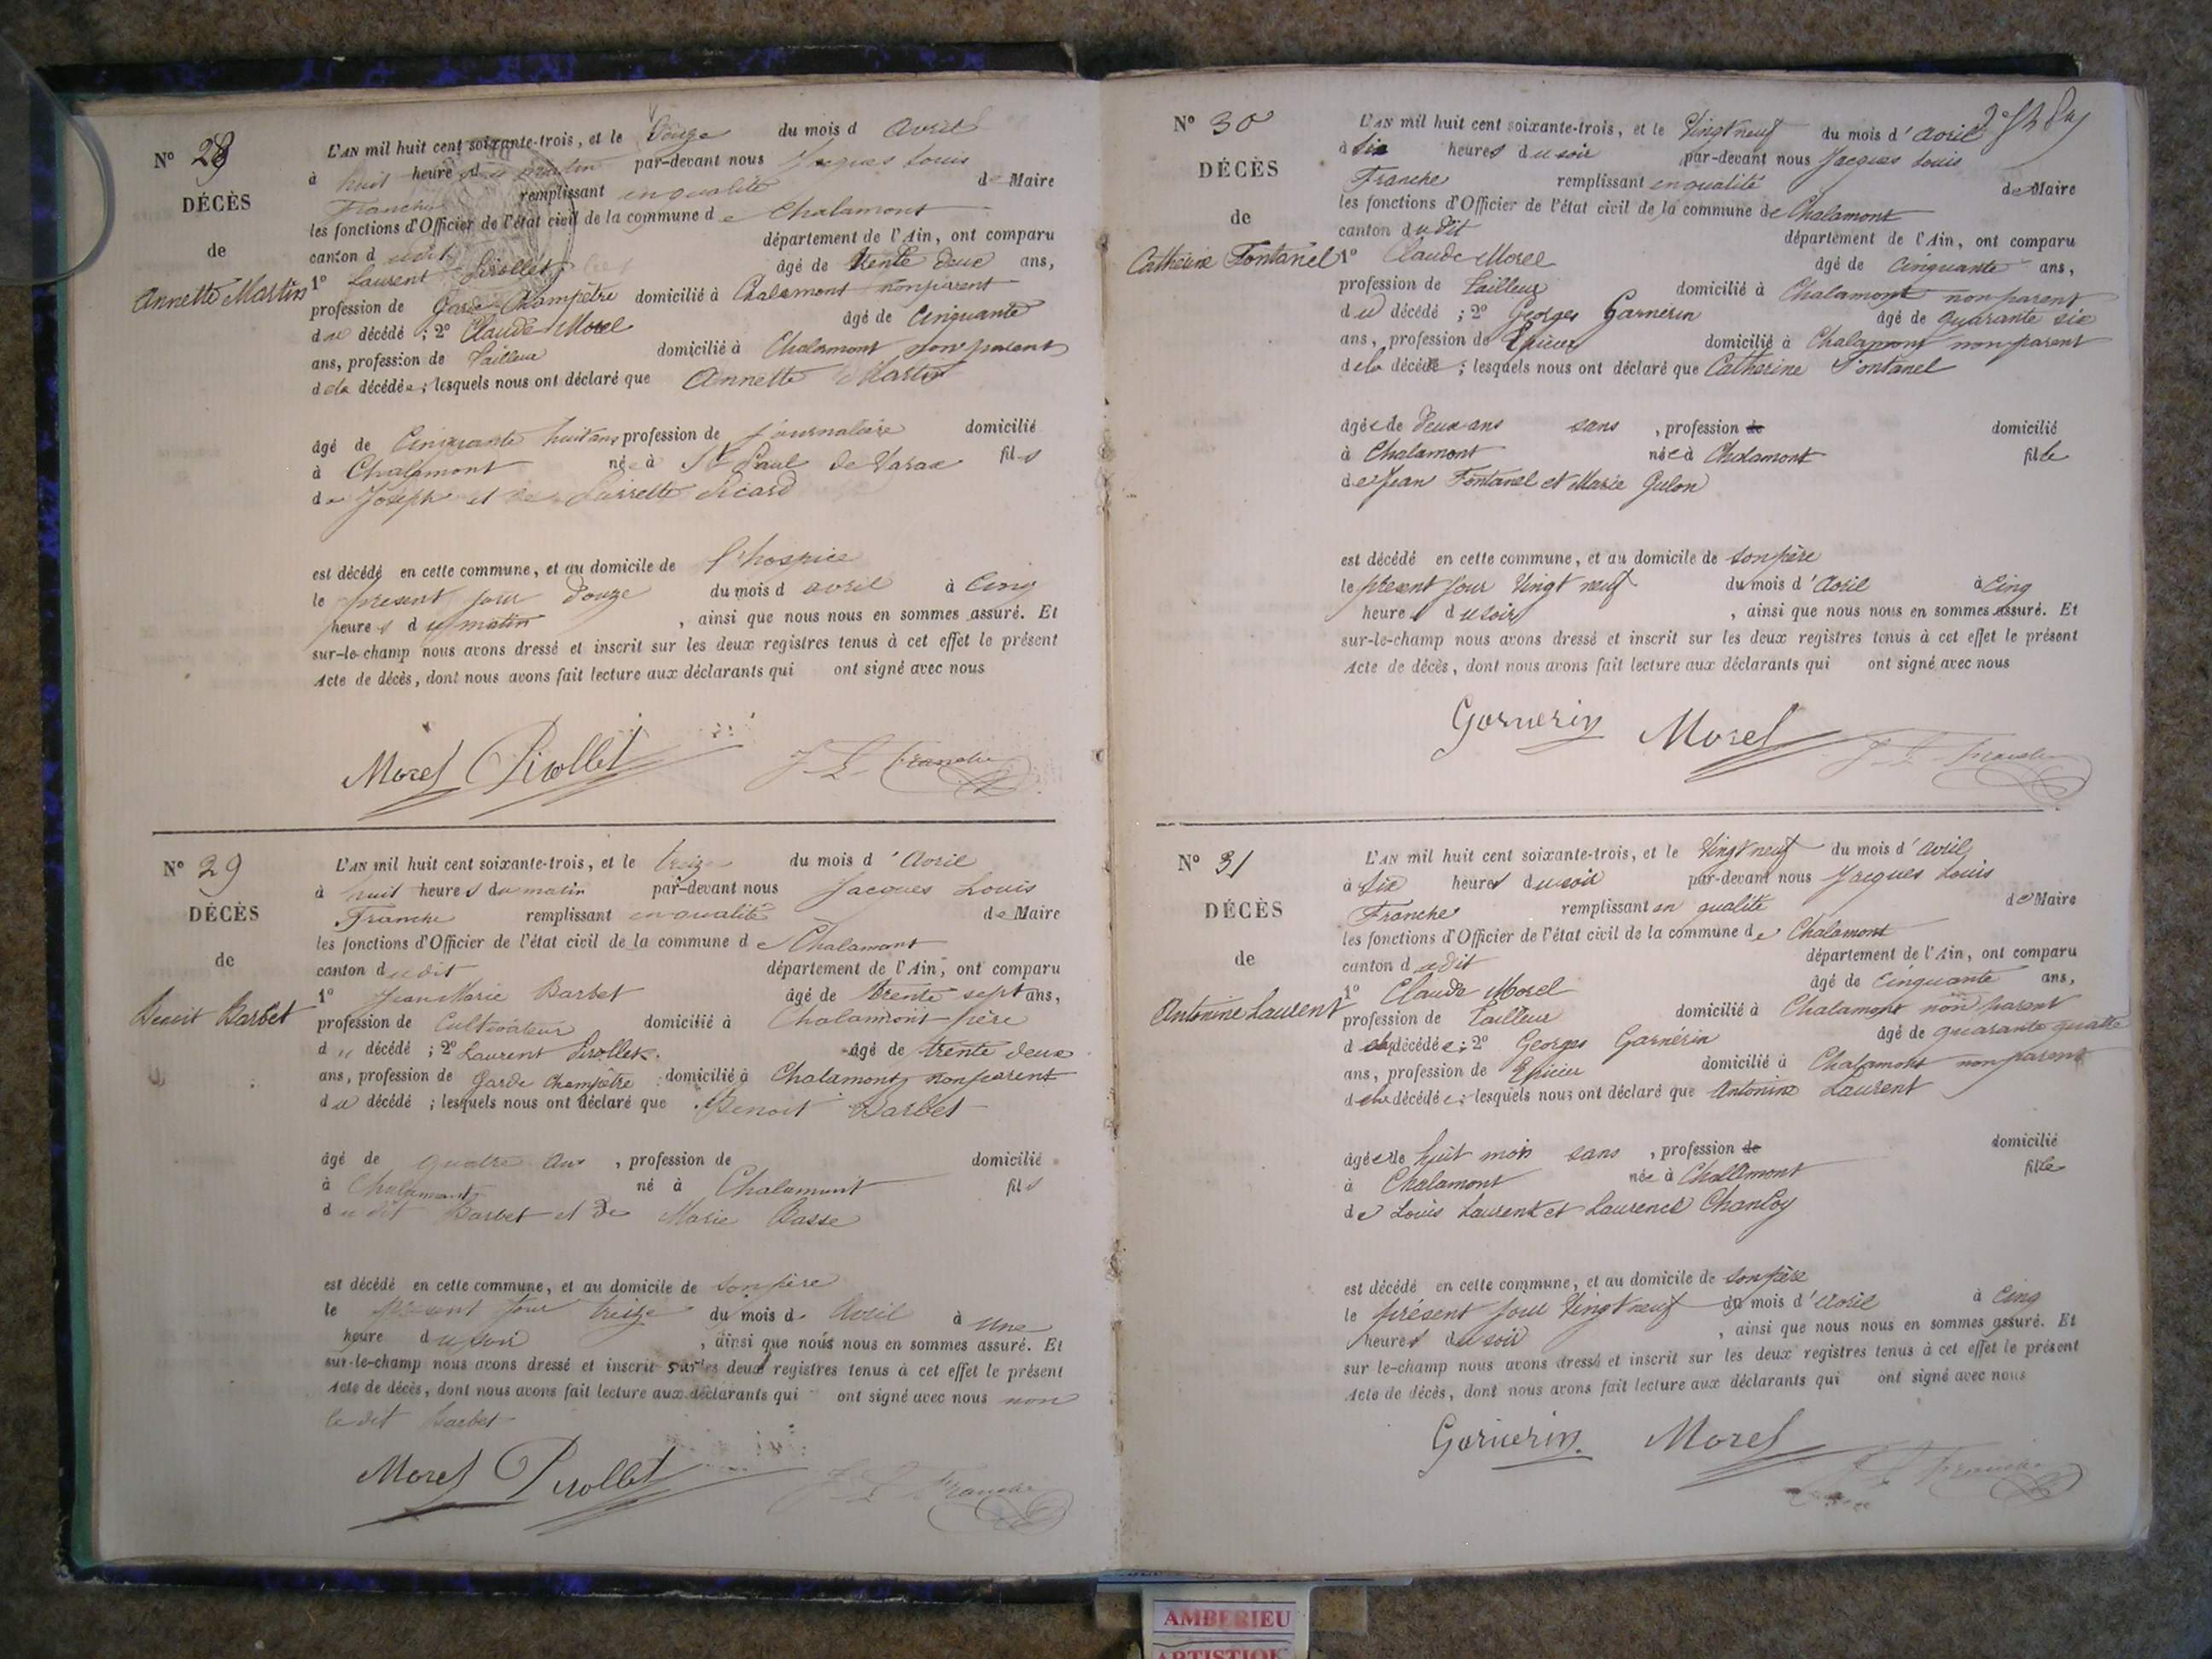 N° 28
DÉCÈS
de
Annette Martin
L'AN mil huit cent soixante-trois, et le Douze du mois d avril
à huit heure du matin par-devant nous Jacques Louis
Franche remplissant en qualité de Maire
les fonctions d'Officier de l'état civil de la commune de Chalamont
canton dudit département de l'Ain, ont comparu
1° Laurent Pirollet âgé de trente deux ans,
profession de Garde Champêtre domicilié à Chalamont non parent
d la décédé ; 2° Claude Morel âgé de Cinquante
ans, profession de Tailleur domicilié à Chalamont non parent
de la décédée ; lesquels nous ont déclaré que Annette Martin
âgé de Cinquante huit ans profession de journalière domicilié
à Chalamont née à St Paul de Varax fil
de Joseph et de Pierrette Sicard
est décédé en cette commune, et au domicile de l'hospice
le présent jour Douze du mois d avril à Cinq
heures du matin , ainsi que nous nous en sommes assuré. Et
sur-le-champ nous avons dressé et inscrit sur les deux registres tenus à cet effet le présent
Acte de décès, dont nous avons fait lecture aux déclarants qui ont signé avec nous
Morel Pirollet J L Franche
N° 29
DÉCÈS
de
Benoit Barbet
L'AN mil huit cent soixante-trois, et le treize du mois d'Avril
à huit heures du matin par-devant nous Jacques Louis
Franche remplissant en qualité de Maire
les fonctions d'Officier de l'état civil de la commune de Chalamont
canton dudit département de l'Ain, ont comparu
1° Jean Marie Barbet âgé de trente sept ans,
profession de Cultivateur domicilié à Chalamont père
du décédé ; 2° Laurent Pirollet âgé de trente deux
ans, profession de Garde Champêtre domicilié à Chalamont non parent
du décédé ; lesquels nous ont déclaré que Benoit Barbet
âgé de quatre ans , profession de domicilié
à Chalamont né à Chalamont fils
du dit Barbet et de Marie Basse
est décédé en cette commune, et au domicile de son père
le présent jour treize du mois d Avril à une
heure du soir , ainsi que nous nous en sommes assuré. Et
sur-le-champ nous avons dressé et inscrit sur les deux registres tenus à cet effet le présent
Acte de décès, dont nous avons fait lecture aux déclarants qui ont signé avec nous non
le dit Barbet
Morel Pirollet J L Franche
N° 30
DÉCÈS
de
Catherine Fontanel
L'AN mil huit cent soixante-trois, et le Vingt neuf du mois d'avril
à Six heures du soir par-devant nous Jacques Louis
Franche remplissant en qualité de Maire
les fonctions d'Officier de l'état civil de la commune de Chalamont
canton dudit département de l'Ain, ont comparu
1° Claude Morel âgé de Cinquante ans,
profession de Tailleur domicilié à Chalamont non parent
du décédé ; 2° Georges Garnerin âgé de quarante six
ans, profession de Epicier domicilié à Chalamont non parent
de la décédé ; lesquels nous ont déclaré que Catherine Fontanel
âgée de Deux ans sans , profession de domicilié
à Chalamont née à Chalamont fille
de Jean Fontanel et Marie Gulon
est décédé en cette commune, et au domicile de son père
le présent jour Vingt neuf du mois d'Avril à Cinq
heures du soir , ainsi que nous nous en sommes assuré. Et
sur-le-champ nous avons dressé et inscrit sur les deux registres tenus à cet effet le présent
Acte de décès, dont nous avons fait lecture aux déclarants qui ont signé avec nous
Garnerin Morel J L Franche
N° 31
DÉCÈS
de
Antonine Laurent
L'AN mil huit cent soixante-trois, et le Vingt neuf du mois d'avril
à Six heures du soir par-devant nous Jacques Louis
Franche remplissant en qualité de Maire
les fonctions d'Officier de l'état civil de la commune de Chalamont
canton dudit département de l'Ain, ont comparu
1° Claude Morel âgé de Cinquante ans,
profession de Tailleur domicilié à Chalamont non parent
de la décédée ; 2° Georges Garnérin âgé de quarante quatre
ans, profession de Epicier domicilié à Chalamont non parent
de la décédée ; lesquels nous ont déclaré que Antonine Laurent
âgée de huit mois sans , profession de domicilié
à Chalamont née à Challamont fille
de Louis Laurent et Laurence Chanloy
est décédé en cette commune, et au domicile de son père
le présent jour Vingt neuf du mois d'avril à Cinq
heures du soir , ainsi que nous nous en sommes assuré. Et
sur le-champ nous avons dressé et inscrit sur les deux registres tenus à cet effet le présent
Acte de décès, dont nous avons fait lecture aux déclarants qui ont signé avec nous
Garnerin Morel J L Franche
AMBERIEU
ARTISTIQUE